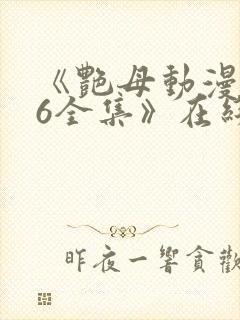 《艷母動漫
6全集》在線
昨夜一響貪歡